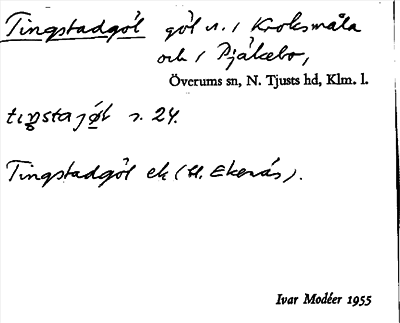 Tingstadgöl göl n. i Kroksmåla
och i Pjäkebo,
Överums sn, N. Tjusts hd, Klm. l.
s. 24.
Tingstadgöl ek (H. Ekenäs).
Ivar Modéer 1955